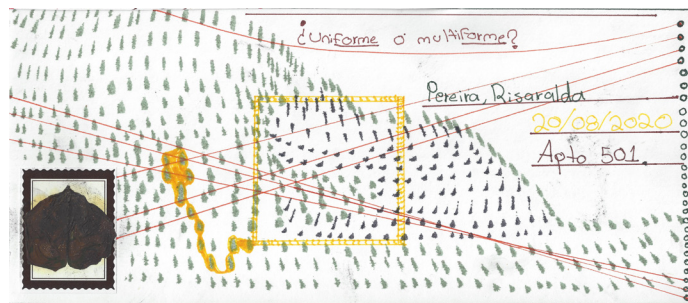 ¿Uniforme o multiforme?
Pereira, Risaralda
20/08/2020
Apto 501.